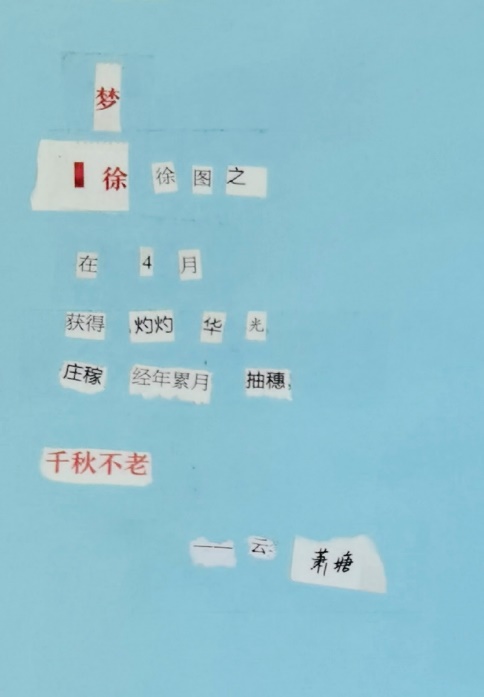 梦
徐 徐 图 之
在 4 月
获得 灼灼 华 光
庄稼 经年累月 抽穗,
千秋不老
—— 云 萧塘